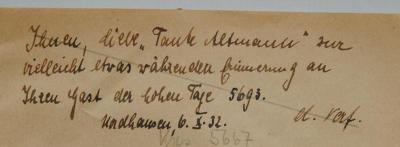 Ihnen, liebe „Tante Altmann“ zur
vielleicht etwas währenden Erinnerung an
Ihren Gast der hohen Tage 5693.
Nordhausen, 6. X. 32. d. Verf.
5667